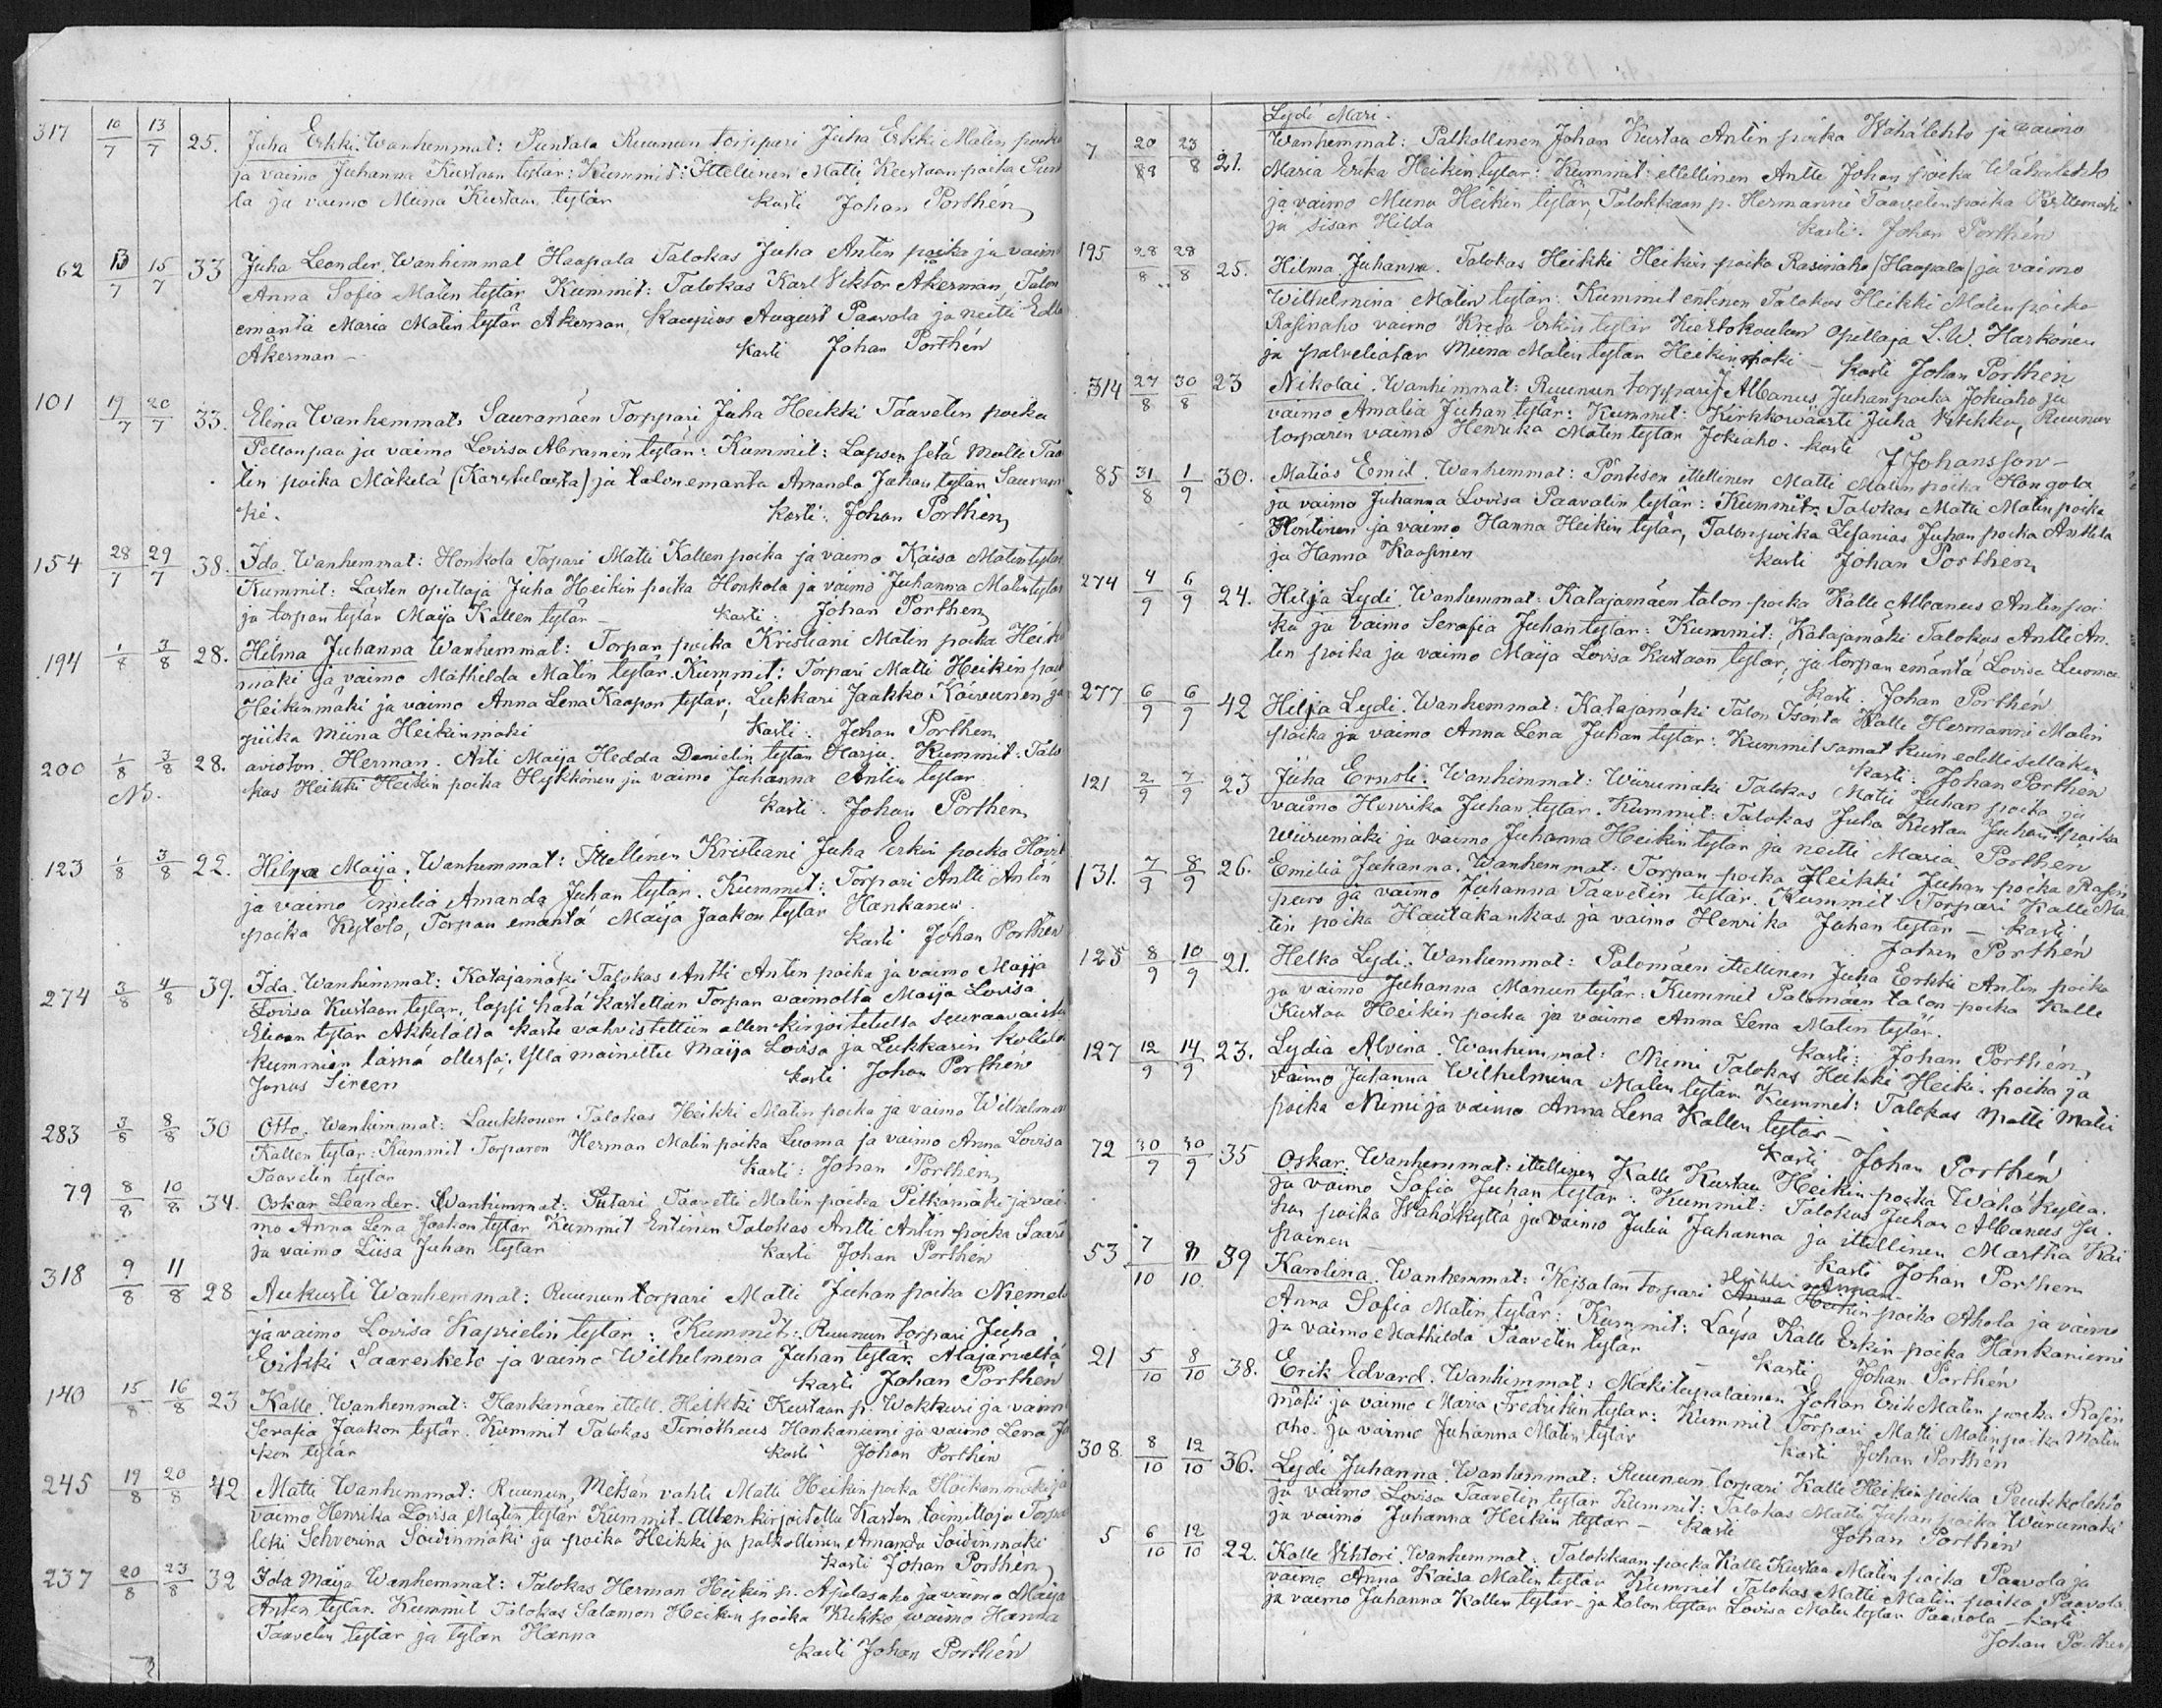 317 10/7 13/7 25. Juha Erkki. Wanhemmat: Puntala Ruunun torppari Juha Erkki Matin poika
ja vaimo Juhanna Kustaan tytär: Kummit: Ittellinen Matti Kustaan poika Pun
ta ja vaimo Miina Kustaan tytär kasti Johan Porthén
62 13/7 15/7 33 Juha Leander. Wanhimmat Haapala Talokas Juha Antin poika ja vaimo
Anna Sofia Matin tytär Kummit: Talokas Karl Viktor Akerman, Talon
emäntä Maria Matin tytär Akerman, Kaupias August Paavola ja neitti Edla
Åkerman — kasti Johan Porthén
101 19/7 20/7 33. Elina Wanhemmat Sauramäen Torppari Juha Heikki Taavetin poika
Pellonpää ja vaimo Lovisa Abramin tytär: Kummit: Lapsen setä Matti Taa
tin poika Mäkelä (Karstulasta) ja talonemäntä Amanda Juhan tytär Sauram
ki. kasti: Johan Porthén
154 28/7 29/7 38. Ida. Wanhemmat: Honkola Torpari Matti Kallen poika ja vaimo Kaisa Matin tytär
Kummit: Lasten opettaja Juha Heikin poika Honkola ja vaimo Juhanna Matin tytär
ja torpan tytär Maija Kallen tytär — kasti: Johan Porthen
194 1/8 3/8 28. Hilma Juhanna Wanhemmat: Torpan poika Kristiani Matin poika Heik
mäki ja vaimo Mathilda Matin tytär. Kummit: Torpari Matti Heikin poik
Heikinmäki ja vaimo Anna Lena Kaapon tytär, Lukkari Jaakko Koivunen ja
piika Miina Heikinmäki kasti: Johan Porthen
200 1/8 3/8 28. avioton. Herman. Äiti Maija Hedda Danielin tytär Harju. Kummit: Talo
NB. kas Heikki Heikin poika Hykkönen ja vaimo Juhanna Antin tytär
kasti. Johan Porthen
123 1/8 3/8 22. Hilja Maija. Wanhemmat: Ittellinen Kristiani Juha Erkin poika
ja vaimo Emilia Amanda Juhan tytär. Kummit: Torpari Antti Antin
poika Kytölä, Torpan emäntä Maija Jaakon tytär Hankanen.
kasti Johan Porthen
274 3/8 4/8 39. Ida. Wanhimmat: Katajamäki Talokas Antti Antin poika ja vaimo Maija
Lovisa Kustaan tytär, lapsi hätä kastettiin Torpan vaimolta Maija Lovisa
tytär Akkilalta kaste vahvistettiin allen kirjoitetulta seuraavaisten
kummien läsnä ollessa; Yllä mainittu Maija Lovisa ja Lukkarin
Jonas Sireen kasti Johan Porthén
283 3/8 8/8 30 Otto. Wanhimmat: Laukkonen Talokas Heikki Matin poika ja vaimo Wilhelmina
Kallen tytär: Kummit Torparen Herman Matin poika Luoma ja vaimo Anna Lovisa
Taavetin tytär kasti: Johan Porthen
79 8/8 10/8 34. Oskar Leander. Wanhimmat: Sutari Taavetti Matin poika Pitkämäki ja vai
mo Anna Lena Jaakon tytär Kummit Entinen Talokas Antti Antin poika Saari
ja vaimo Liisa Juhan tytär kasti Johan Porthén
318 9/8 11/8 28 Aukusti Wanhemmat: Ruunun torpari Matti Juhan poika Niemelä
ja vaimo Lovisa Kaprielin tytär: Kummit: Ruunun torpari Juha
Erikki Saarenketo ja vaimo Wilhelmina Juhan tytär Alajärveltä
kasti Johan Porthén
140 15/8 16/8 23 Kalle. Wanhemmat: Hankamäen ittell. Heikki Kustaan p. Wokkuri ja vaim
Serafia Jaakon tytär. Kummit Talokas Timotheus Hankaniemi ja vaimo Lena Ja
kon tytär kasti Johan Porthén
245 19/8 20/8 42 Matti Wanhemmat: Ruunun Metsän vahti Matti Heikin poika Hoikanmäki ja
vaimo Henrika Lovisa Matin tytär Kummit Allen kirjoitettu Kasten toimittaja Torpan
leski Sehverina Soidinmäki ja poika Heikki ja palkollinen Amanda Soidinmäki
kasti Johan Porthen
237 20/8 23/8 32 Ida Maija Wanhemmat: Talokas Herman Heikin p. Apalasaho ja vaimo Maija
Antin tytär. Kummit Talokas Salamon Heikin poika Kukko vaimo Hanna
Taavetin tytär ja tytär Hanna
kasti Johan Porthén
Lydi Mari.
7 20/8 23/8 21. Wanhemmat: Palkollinen Johan Kustaa Antin poika Wähälehto ja vaimo
Maria Erika Heikin tytär: Kummit: ittellinen Antti Johan poika Wähälehto
ja vaimo Miina Heikin tytär, Talokkaan p. Hermanni Taavetin poika
ja sisar Hilda kasti: Johan Porthén
195 28/8 28/8 25. Hilma Juhanna. Talokas Heikki Heikin poika Rasinaho (Haapala) ja vaimo
Wilhelmina Matin tytär. Kummit entinen Talokas Heikki Matin poika
Rasinaho vaimo Kreta Erkin tytär Kiertokoulun Opettaja L. W. Harkönen
ja palveliatar Miina Matin tytär Heikinmäki — kasti Johan Porthén
314 27/8 30/8 23 Nikolai. Wanhimmat: Ruunun torppari J Albanus Juhan poika Jokiaho ja
vaimo Amalia Juhan tytär: Kummit: Kirkkowäärti Juha Kukku, Ruunun
torparin vaimo Henrika Matin tytär Jokiaho. kasti J Johansson —
85 31/8 1/9 30. Matias Emil. Wanhemmat: Pöntisen ittellinen Matti Matin poika Hongola
ja vaimo Juhanna Lovisa Paavalin tytär: Kummit: Talokas Matti Matin poika
Pöntinen ja vaimo Hanna Heikin tytär, Talonpoika Zefanias Juhan poika Anttila
ja Hanna Kaasinen kasti Johan Porthén
274 4/9 6/9 24. Hilja Lydi. Wanhemmat: Katajamäen talon poika Kalle Albanus Antin poi
ka ja vaimo Serafia Juhan tytär: Kummit: Katajamäki Talokas Antti An.
tin poika ja vaimo Maija Lovisa Kustaan tytär, ja torpan emäntä Lovisa Luoma
kasti. Johan Porthén
277 6/9 6/9 42 Hilja Lydi. Wanhemmat: Katajamäki Talon Isäntä Kalle Hermanni Matin
poika ja vaimo Anna Lena Juhan tytär: Kummit samat kuin edellisilläkin
kasti: Johan Porthén
121 2/9 7/9 23 Juha Ernsti. Wanhimmat: Wiirumäki Talokas Matti Juhan poika ja
vaimo Henrika Juhan tytär. Kummit: Talokas Juha Kustaa Juhan poika
Wiirumäki ja vaimo Juhanna Heikin tytär ja neitti Maria Porthén
131. 7/9 8/9 26. Emilia Juhanna. Wanhemmat: Torpan poika Heikki Juhan poika Rasin
pero ja vaimo Juhanna Taavetin tytär. Kummit Torpari Kalle Ma
tin poika Hautakankas ja vaimo Henrika Juhan tytär — kasti
Johan Porthén
125 8/9 10/9 21. Helka Lydi. Wanhemmat: Palomäen ittellinen Juha Erkki Antin poika
ja vaimo Juhanna Manun tytär: Kummit Palomäen talon poika Kalle
Kustaa Heikin poika ja vaimo Anna Lena Matin tytär.
kasti: Johan Porthén
127 12/9 14/9 23. Lydia Alvina. Wanhimmat: Niemi Talokas Heikki Heiki. poika ja
vaimo Juhanna Wilhelmina Matin tytär Kummit: Talokas Matti Matin
poika Niemi ja vaimo Anna Lena Kallen tytär —
kasti Johan Porthén
72 30/9 30/9 35 Oskar. Wanhemmat: ittellinen Kalle Kustaa Heikin poika Wähäkylä.
ja vaimo Sofia Juhan tytär. Kummit: Talokas Juhan Albanus Ju.
han poika Wähäkyttä ja vaimo Julia Juhanna ja ittellinen Martha Kai
painen — kasti Johan Porthen
53. 7/10 9/10 39 Karolina. Wanhemmat: Keisalan torpari Anna Heikin poika Ahola ja vaimo
Anna Sofia Matin tytär: Kummit: Läysä Kalle Erkin poika Hankaniemi
ja vaimo Mathilda Taavetin tytär — kasti Johan Porthén
21 5/10 8/10 38. Erik Edvard. Wanhimmat: Mäkitupalainen Johan Erik Matin poika Rasin
mäki ja vaimo Maria Fredrikin tytär: Kummit Torpari Matti Matin poika Matin
aho. ja vaimo Juhanna Matin tytär kasti Johan Porthén
308. 8/10 12/10 36. Lydi Juhanna. Wanhimmat: Ruunun torpari Kalle Heikin poika Peukkolehto
ja vaimo Lovisa Taavetin tytär Kummit: Talokas Matti Juhan poika Wiirumäki
ja vaimo Juhanna Heikin tytär — kasti Johan Porthén
5 6/10 12/10 22. Kalle Vihtori Wanhemmat: Talokkaan poika Kalle Kustaa Matin poika Paavola ja
vaimo Anna Kaisa Matin tytär Kummit Talokas Matti Matin poika Paavola
ja vaimo Juhanna Kallen tytär — ja talon tytär Lovisa Matin tytär Paavola — kasti
Johan Porthen